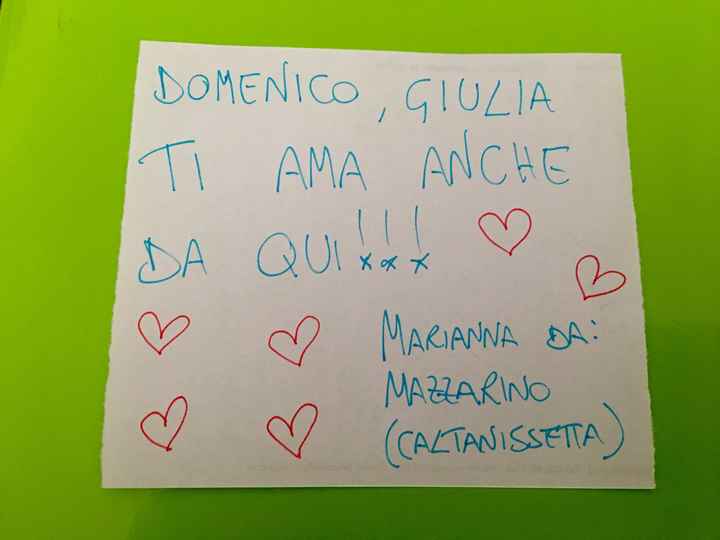 DOMENICO, GIULIA
TI AMA ANCHE
DA QUI!!!
MARIANNA DA:
MAZZARINO
(CALTANISSETTA)